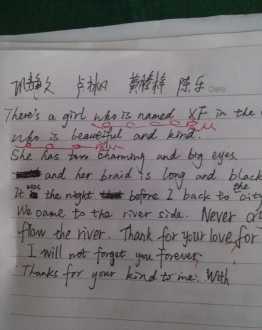 陈乐
There's a girl who is named XF in the
who is beautiful and kind.
She has two charming and big eyes
and her braid is long and black
It was the night before I back to the city
We came to the river side. Never
flow the river. Thank for your love, for
I will not forget you forever,
Thanks for your kind to me. With